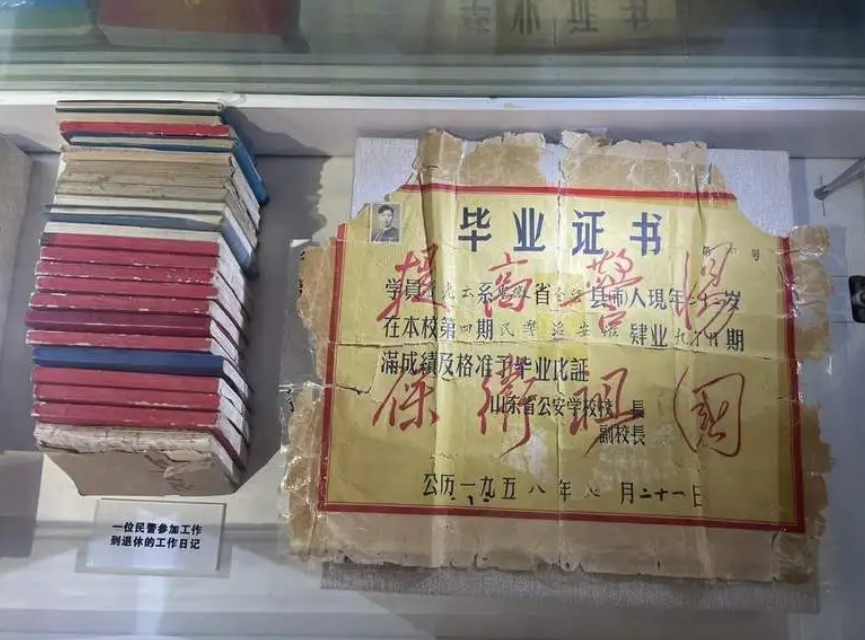 毕业证书
第 号
提高警惕
保卫祖国
学員 云系 省 县(市)人現年二十 岁
在本校第四期民警治安 肄业 期
滿成績及格准予毕业此証
山东省公安学校校長
副校長
公历一九五八年 月二十一日
一位民警参加工作
到退休的工作日记